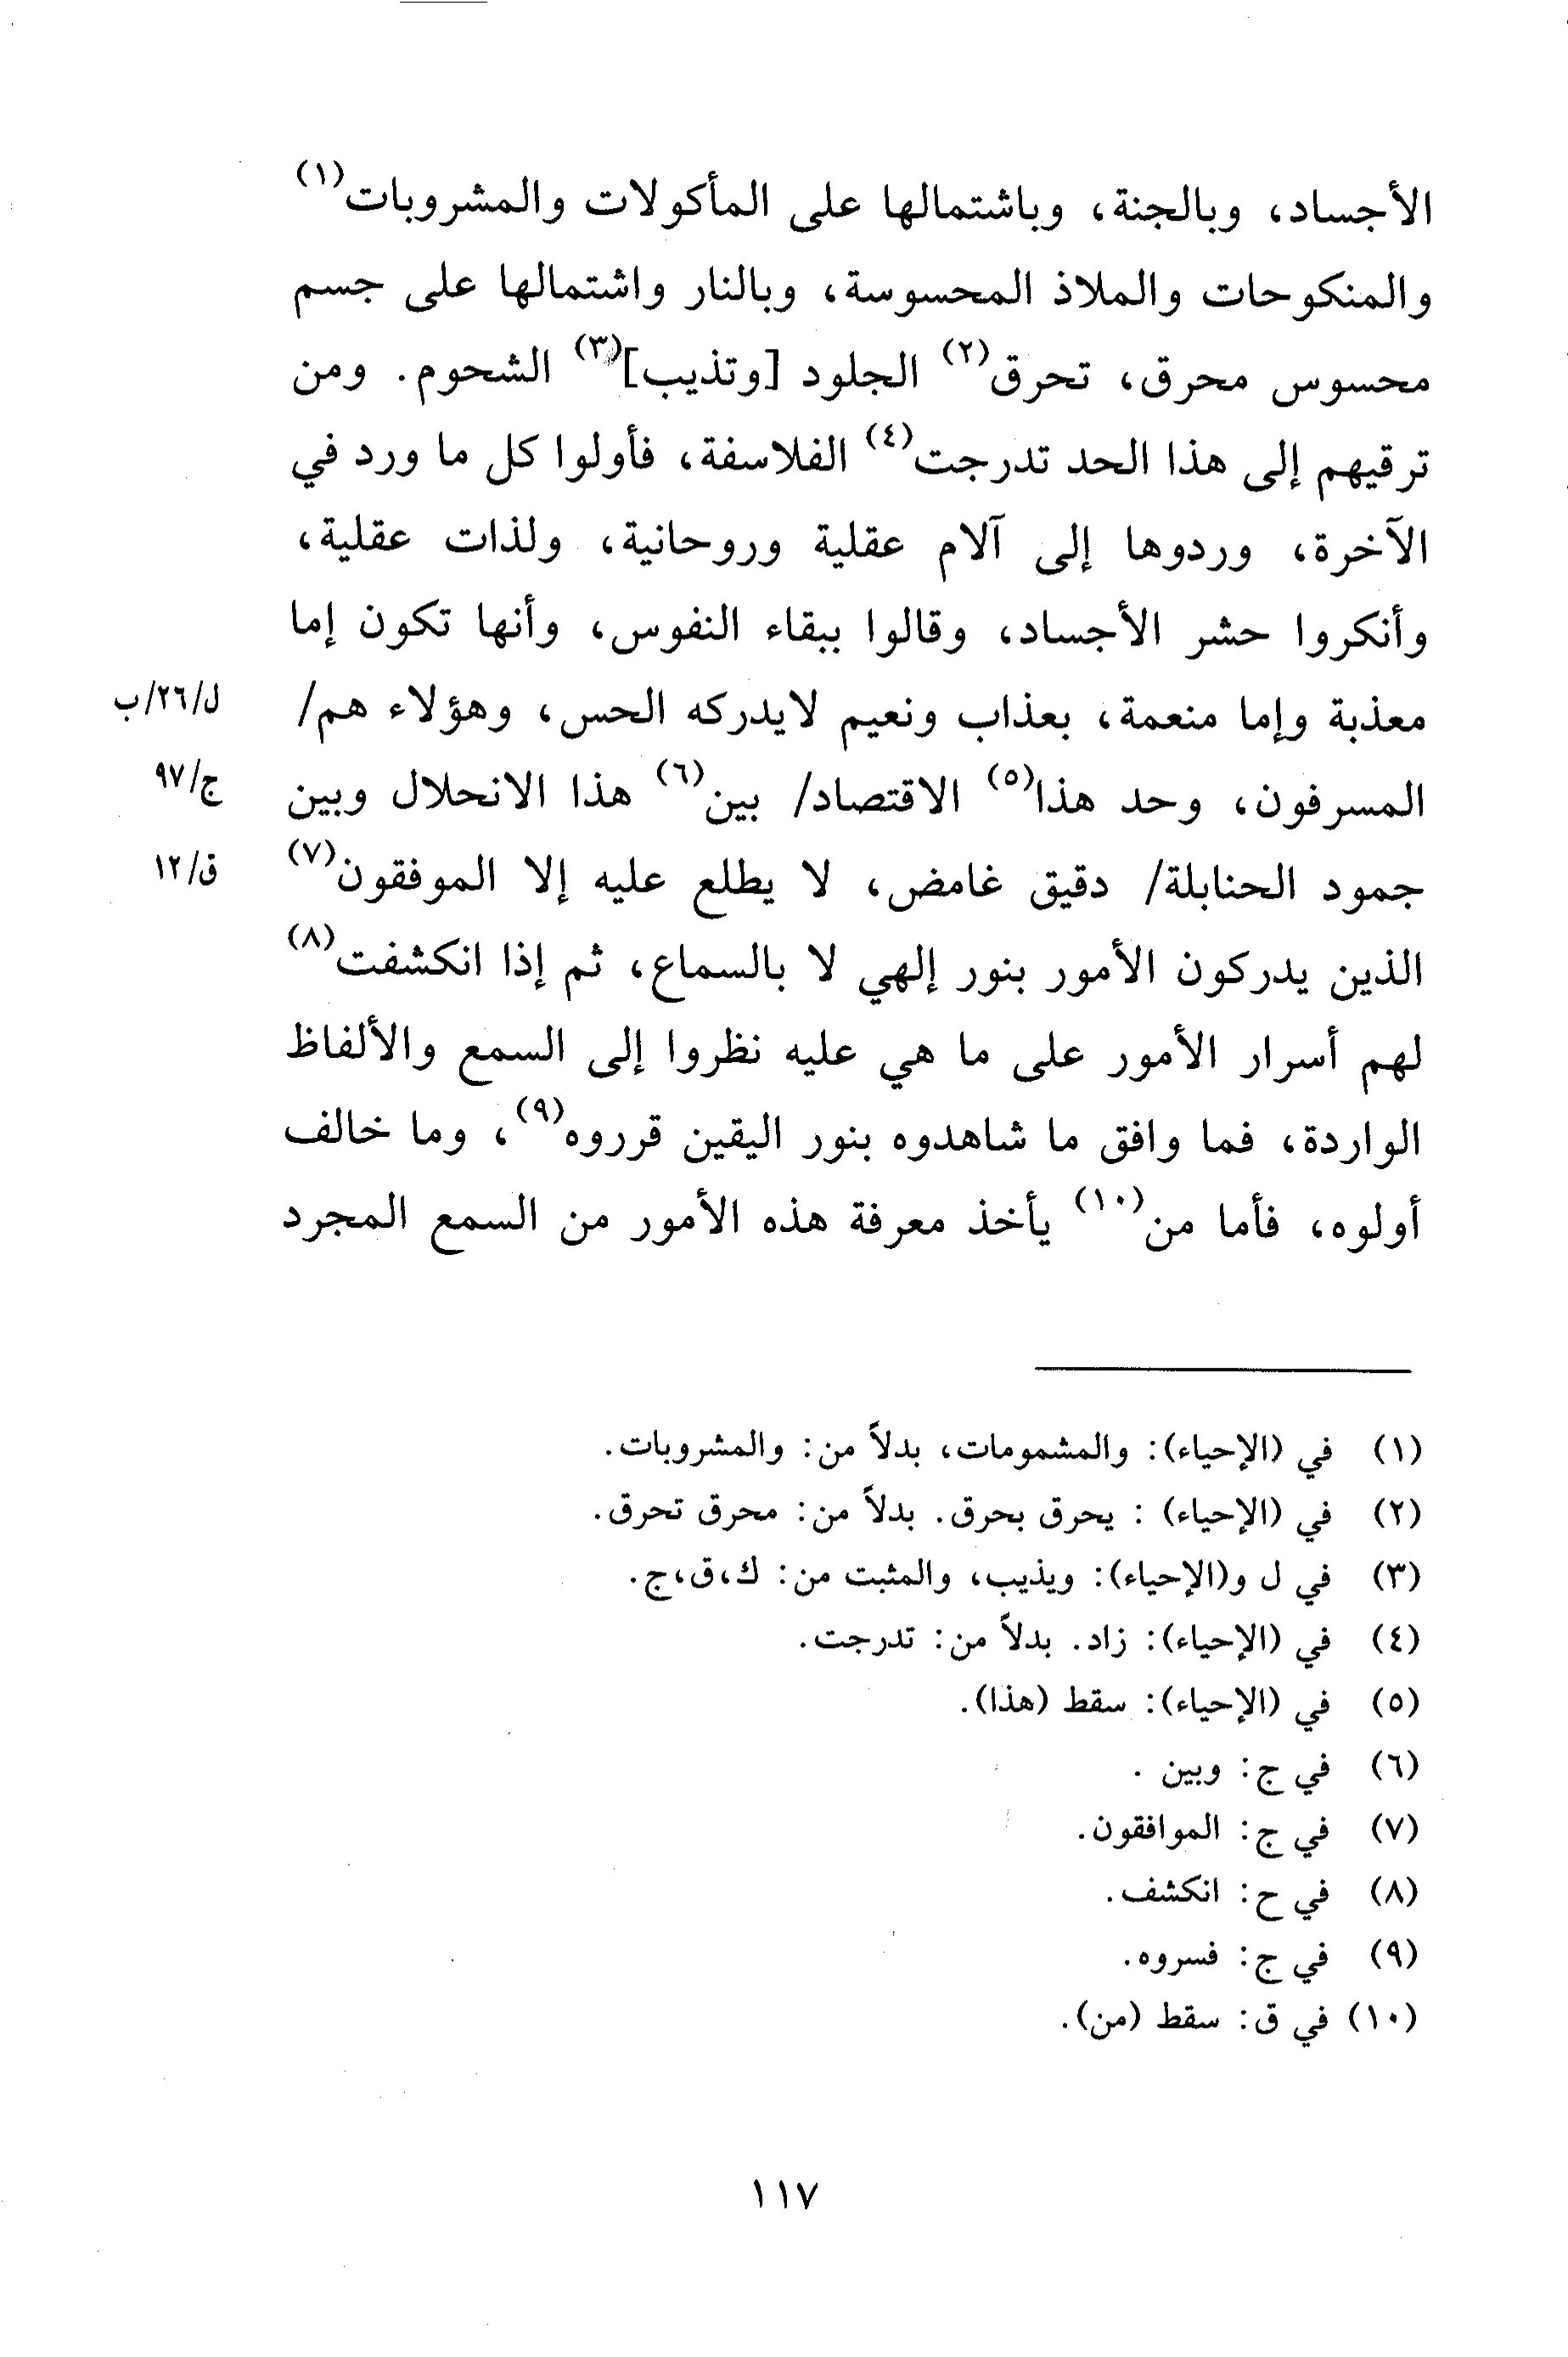 الأجساد، وبالجنة، وباشتمالها على المأكولات والمشروبات(١)
والمنكوحات والملاذ المحسوسة، وبالنار واشتمالها على جسم
محسوس محرق، تحرق(٢) الجلود [وتذيب](٣) الشحوم. ومن
ترقيهم إلى هذا الحد تدرجت(٤) الفلاسفة، فأولوا كل ما ورد في
الآخرة، وردوها إلى آلام عقلية وروحانية، ولذات عقلية،
وأنكروا حشر الأجساد، وقالوا ببقاء النفوس، وأنها تكون إما
معذبة وإما منعمة، بعذاب ونعيم لايدركه الحس، وهؤلاء هم/ ل/٢٦/ب
المسرفون، وحد هذا(٥) الاقتصاد/ بين(٦) هذا الانحلال وبين ج/٩٧
جمود الحنابلة/ دقيق غامض، لا يطلع عليه إلا الموفقون(٧) ق/١٢
الذين يدركون الأمور بنور إلهي لا بالسماع، ثم إذا انكشفت(٨)
لهم أسرار الأمور على ما هي عليه نظروا إلى السمع والألفاظ
الواردة، فما وافق ما شاهدوه بنور اليقين قرروه(٩)، وما خالف
أولوه، فأما من(١٠) يأخذ معرفة هذه الأمور من السمع المجرد
(١) في (الإحياء): والمشمومات، بدلاً من: والمشروبات.
(٢) في (الإحياء) : يحرق بحرق. بدلاً من: محرق تحرق.
(٣) في ل و(الإحياء): ويذيب، والمثبت من: ك،ق،ج.
(٤) في (الإحياء): زاد. بدلاً من: تدرجت.
(٥) في (الإحياء): سقط (هذا).
(٦) في ج: وبين .
(٧) في ج: الموافقون.
(٨) في ح: انكشف.
(٩) في ج: فسروه.
(١٠) في ق: سقط (من).
١١٧